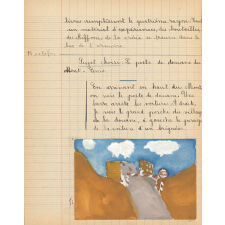 livres remplissent le quatrième rayon. Pour
un matériel d'expériences, des bouteilles
des chiffons, de la craie se trouve dans le
bas de l'armoire.
Sujet choisi: Le poste de douane du
Mont-
En arrivant en haut du Mont
on voit le poste de douane. Une
barre arrête les voitures. A droite
je vois le grand porche du village
de la douane, à gauche le garage
de la voiture d'un brigadier.